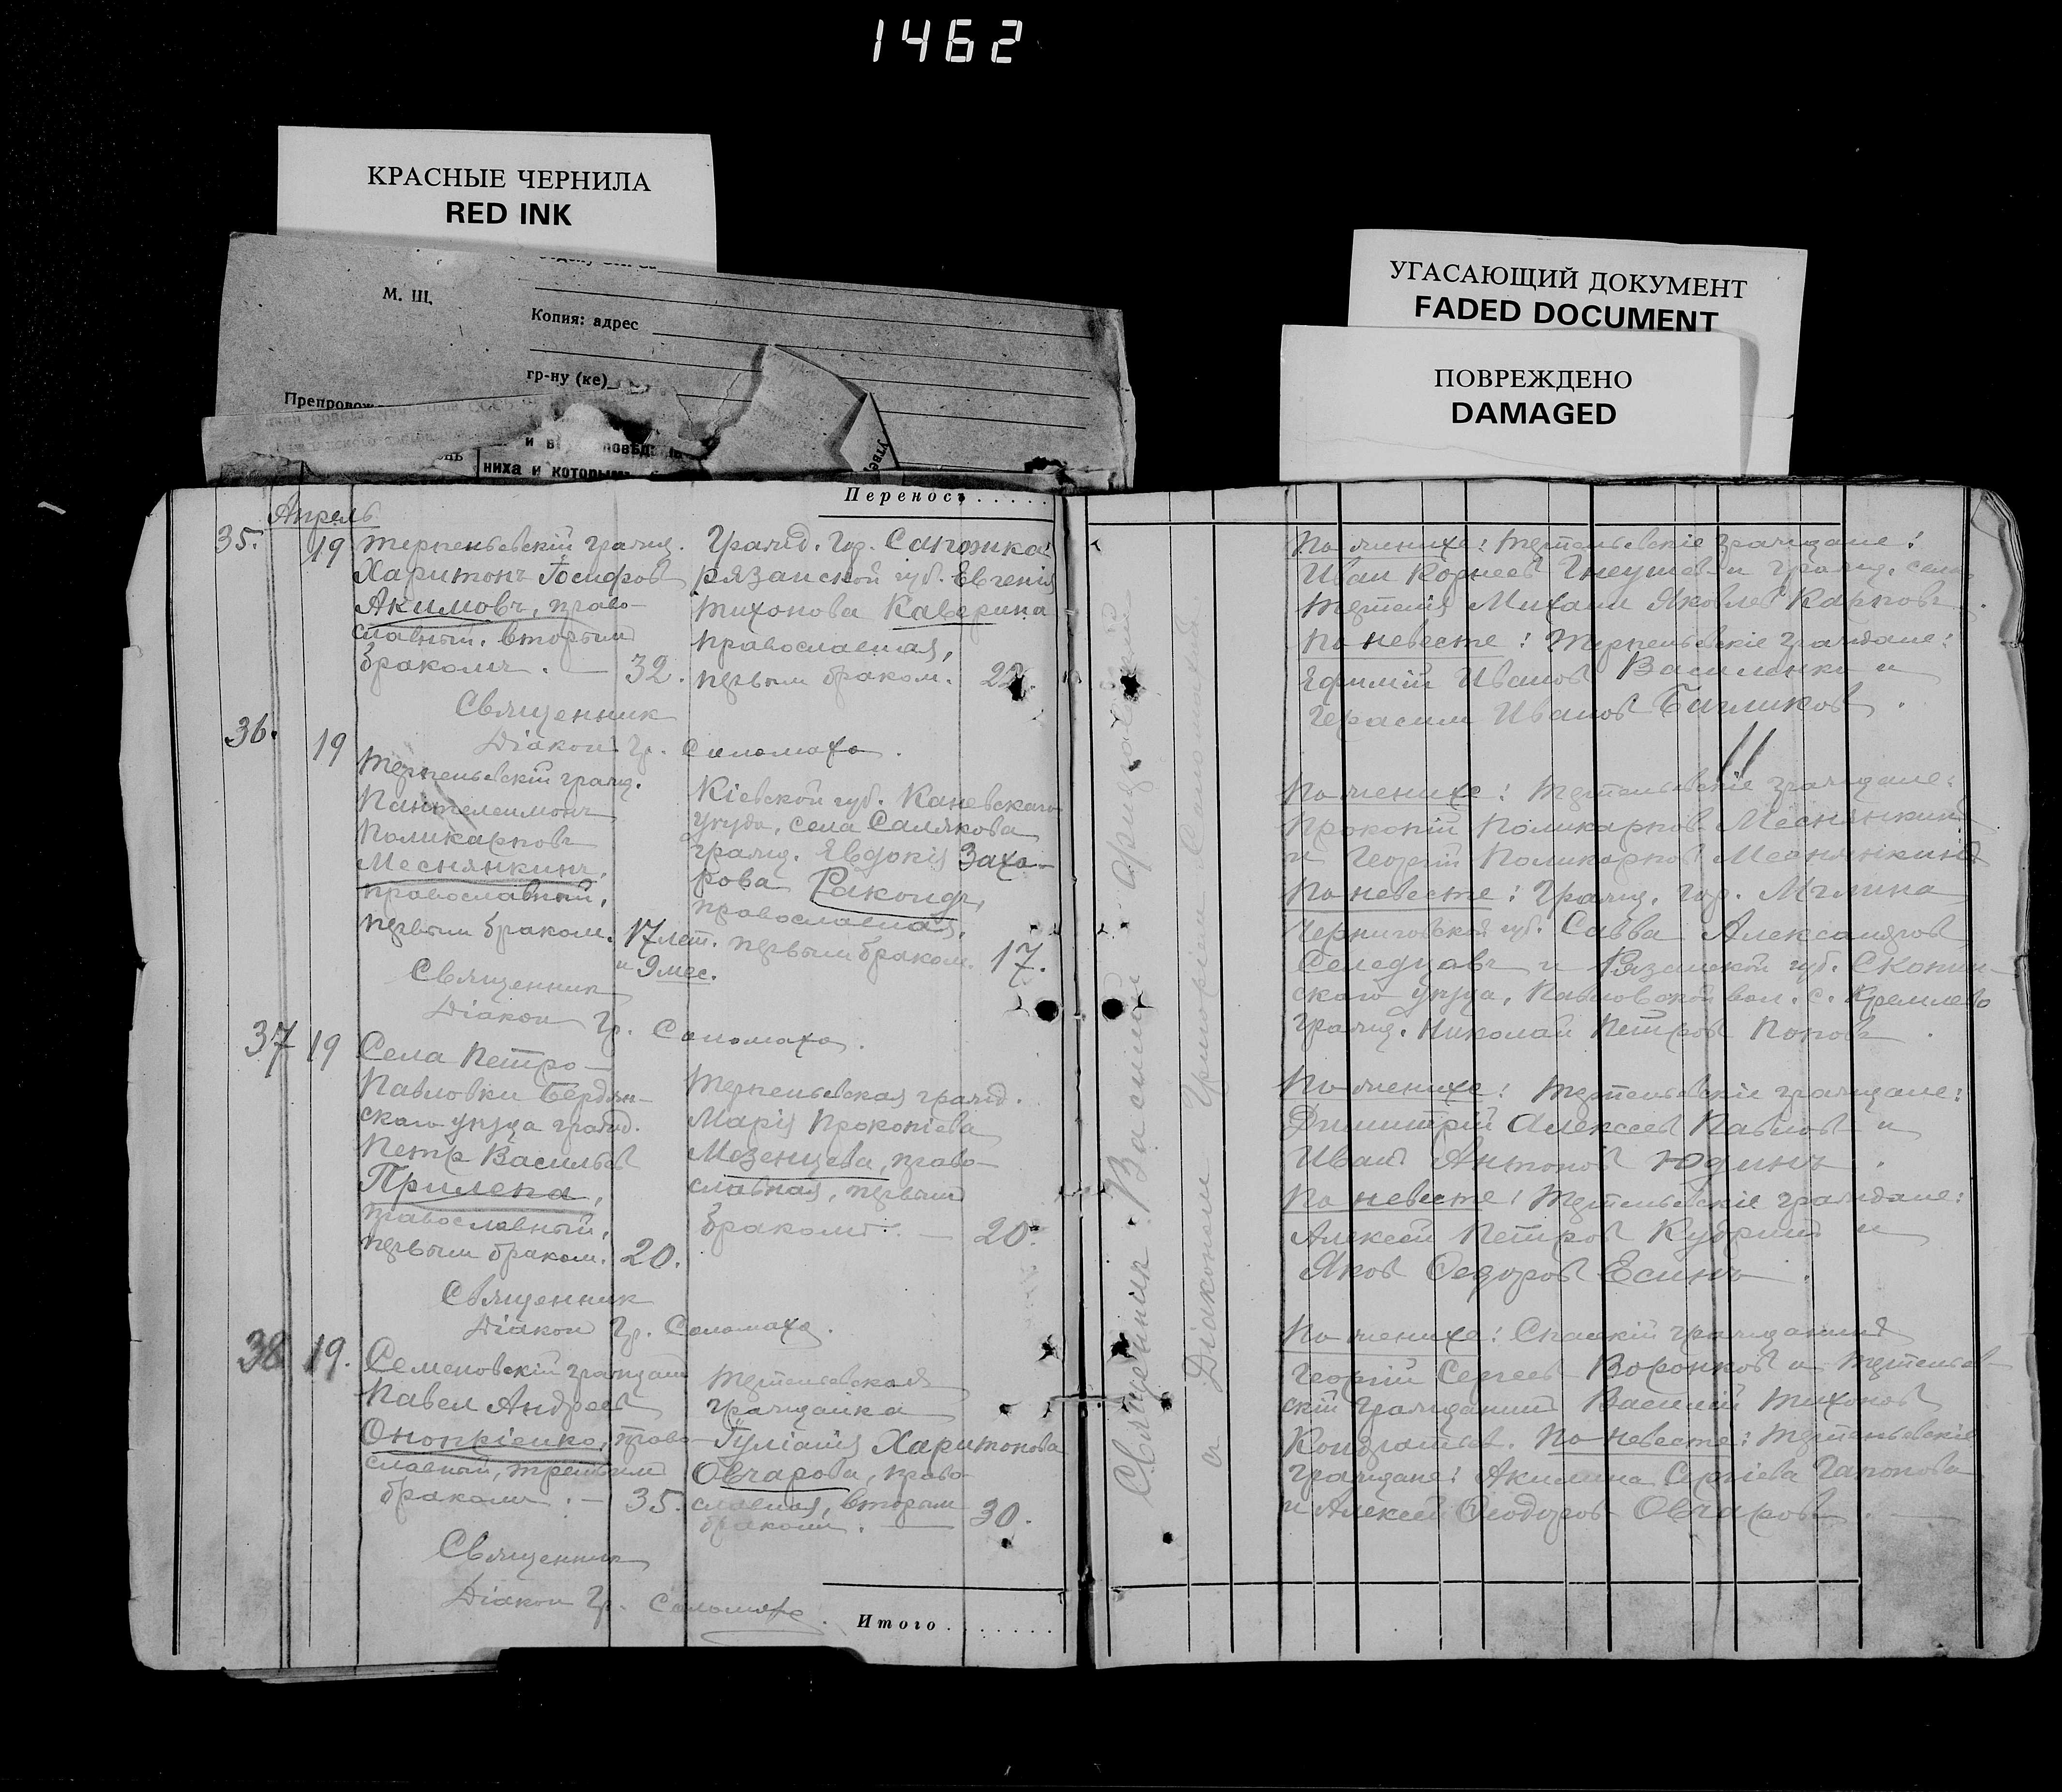 1462
КРАСНЫЕ ЧЕРНИЛА
RED INK
УГАСАЮЩИЙ ДОКУМЕНТ
FADED DOCUMENT
ПОВРЕЖДЕНО
DAMAGED
М. Ш.
Копия: адрес
гр-ну (ке)
Препровож
ниха и которымъ
Переносъ . . . . .
Апрель
35.
19
Терпеньевскій гражд.
Харитонъ Іосифовъ
Акимовъ, право-
славный. вторымъ
бракомъ. — 32.
Гражд. гор. Сапожка
Рязанской губ. Евгенія
Тихонова Каверина
православная,
первым браком. 22.
Священник
Діакон Гр. Соломаха.
36.
19
Терпеньевскій гражд.
Пантелеимонъ
Поликарповъ
Меснянкинъ,
православный,
первым браком. 17 лет.
и 9 мес.
Кіевской губ. Каневскаго
уезда, села Салякова
гражд. Евдокія Захо-
рова Ракоид,
православная,
первым браком. 17.
Священник
Діакон Гр. Соломаха.
37
19
Села Петро-
Павловки Бердян-
скаго уезда гражд.
Петр Васильев
Прилепа,
православный,
первым браком. 20.
Терпеньевская гражд.
Марія Прокопіева
Мезенцева, право-
славная, первым
бракомъ. — 20.
Священник
Діакон Гр. Соломаха.
38
19.
Семеновскій граждан
Павел Андреев
Онопріенко, право-
славный, третьим
бракомъ. — 35.
Терпеньевская
гражданка
Іуліанія Харитонова
Овчарова, право-
славная, вторым
браком. — 30.
Священник
Діакон Гр. Соломаха.
Итого . . . . . . .
Священник Василий
с Діаконом Григоріем Соломахой.
По женихе: Терпеньевскіе граждане:
Иван Корнеев Гнеушев и гражд. села
Терпенія Михаил Яковлев Карповъ.
По невесте: Терпеньевскіе граждане:
Ефимій Иванов Василенко и
Герасим Иванов Багликов.
По женихе: Терпеньевскіе граждане:
Прокопій Поликарпов Меснянкин
и Георгій Поликарпов Меснянкинъ
По невесте: Гражд. гор. Мглина
Черниговской губ. Савва Александров
Селедцовъ и Рязанской губ. Скопин-
скаго уезда, Павловской вол. с. Кремлево
гражд. Николай Петров Поповъ.
По женихе: Терпеньевскіе граждане:
Димитрій Алексеев Павлов и
Иван Антонов Юдинъ.
По невесте: Терпеньевскіе граждане:
Алексей Петров Кудрин и
Яков Федоров Есинъ.
По женихе: Спаскій гражданин
Георгій Сергеев Воронков и Терпеньев-
скій гражданин Василій Тихонов
Кондратьев. По невесте: Терпеньевскіе
граждане: Акилина Сергіева Гапонова
и Алексей Феодоров Овчаровъ. —